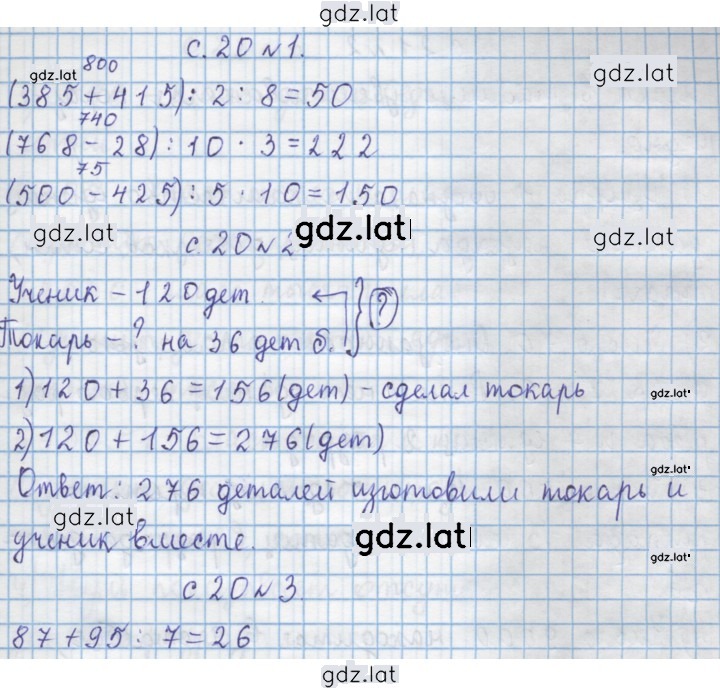 gdz.lat
с. 20 № 1.
800
gdz.lat
gdz.lat
(385 + 415) : 2 : 8 = 50
740
(768 - 28) : 10 · 3 = 222
75
(500 - 425) : 5 · 10 = 150
gdz.lat
gdz.lat
gdz.lat
с. 20 № 2
Ученик - 120 дет.
?
Токарь - ? на 36 дет б.
1) 120 + 36 = 156 (дет) - сделал токарь
gdz.lat
2) 120 + 156 = 276 (дет)
gdz.lat
Ответ: 276 деталей изготовили токарь и
gdz.lat
ученик вместе.
gdz.lat
gdz.lat
с 20 № 3.
87 + 95 : 7 = 26
gdz.lat